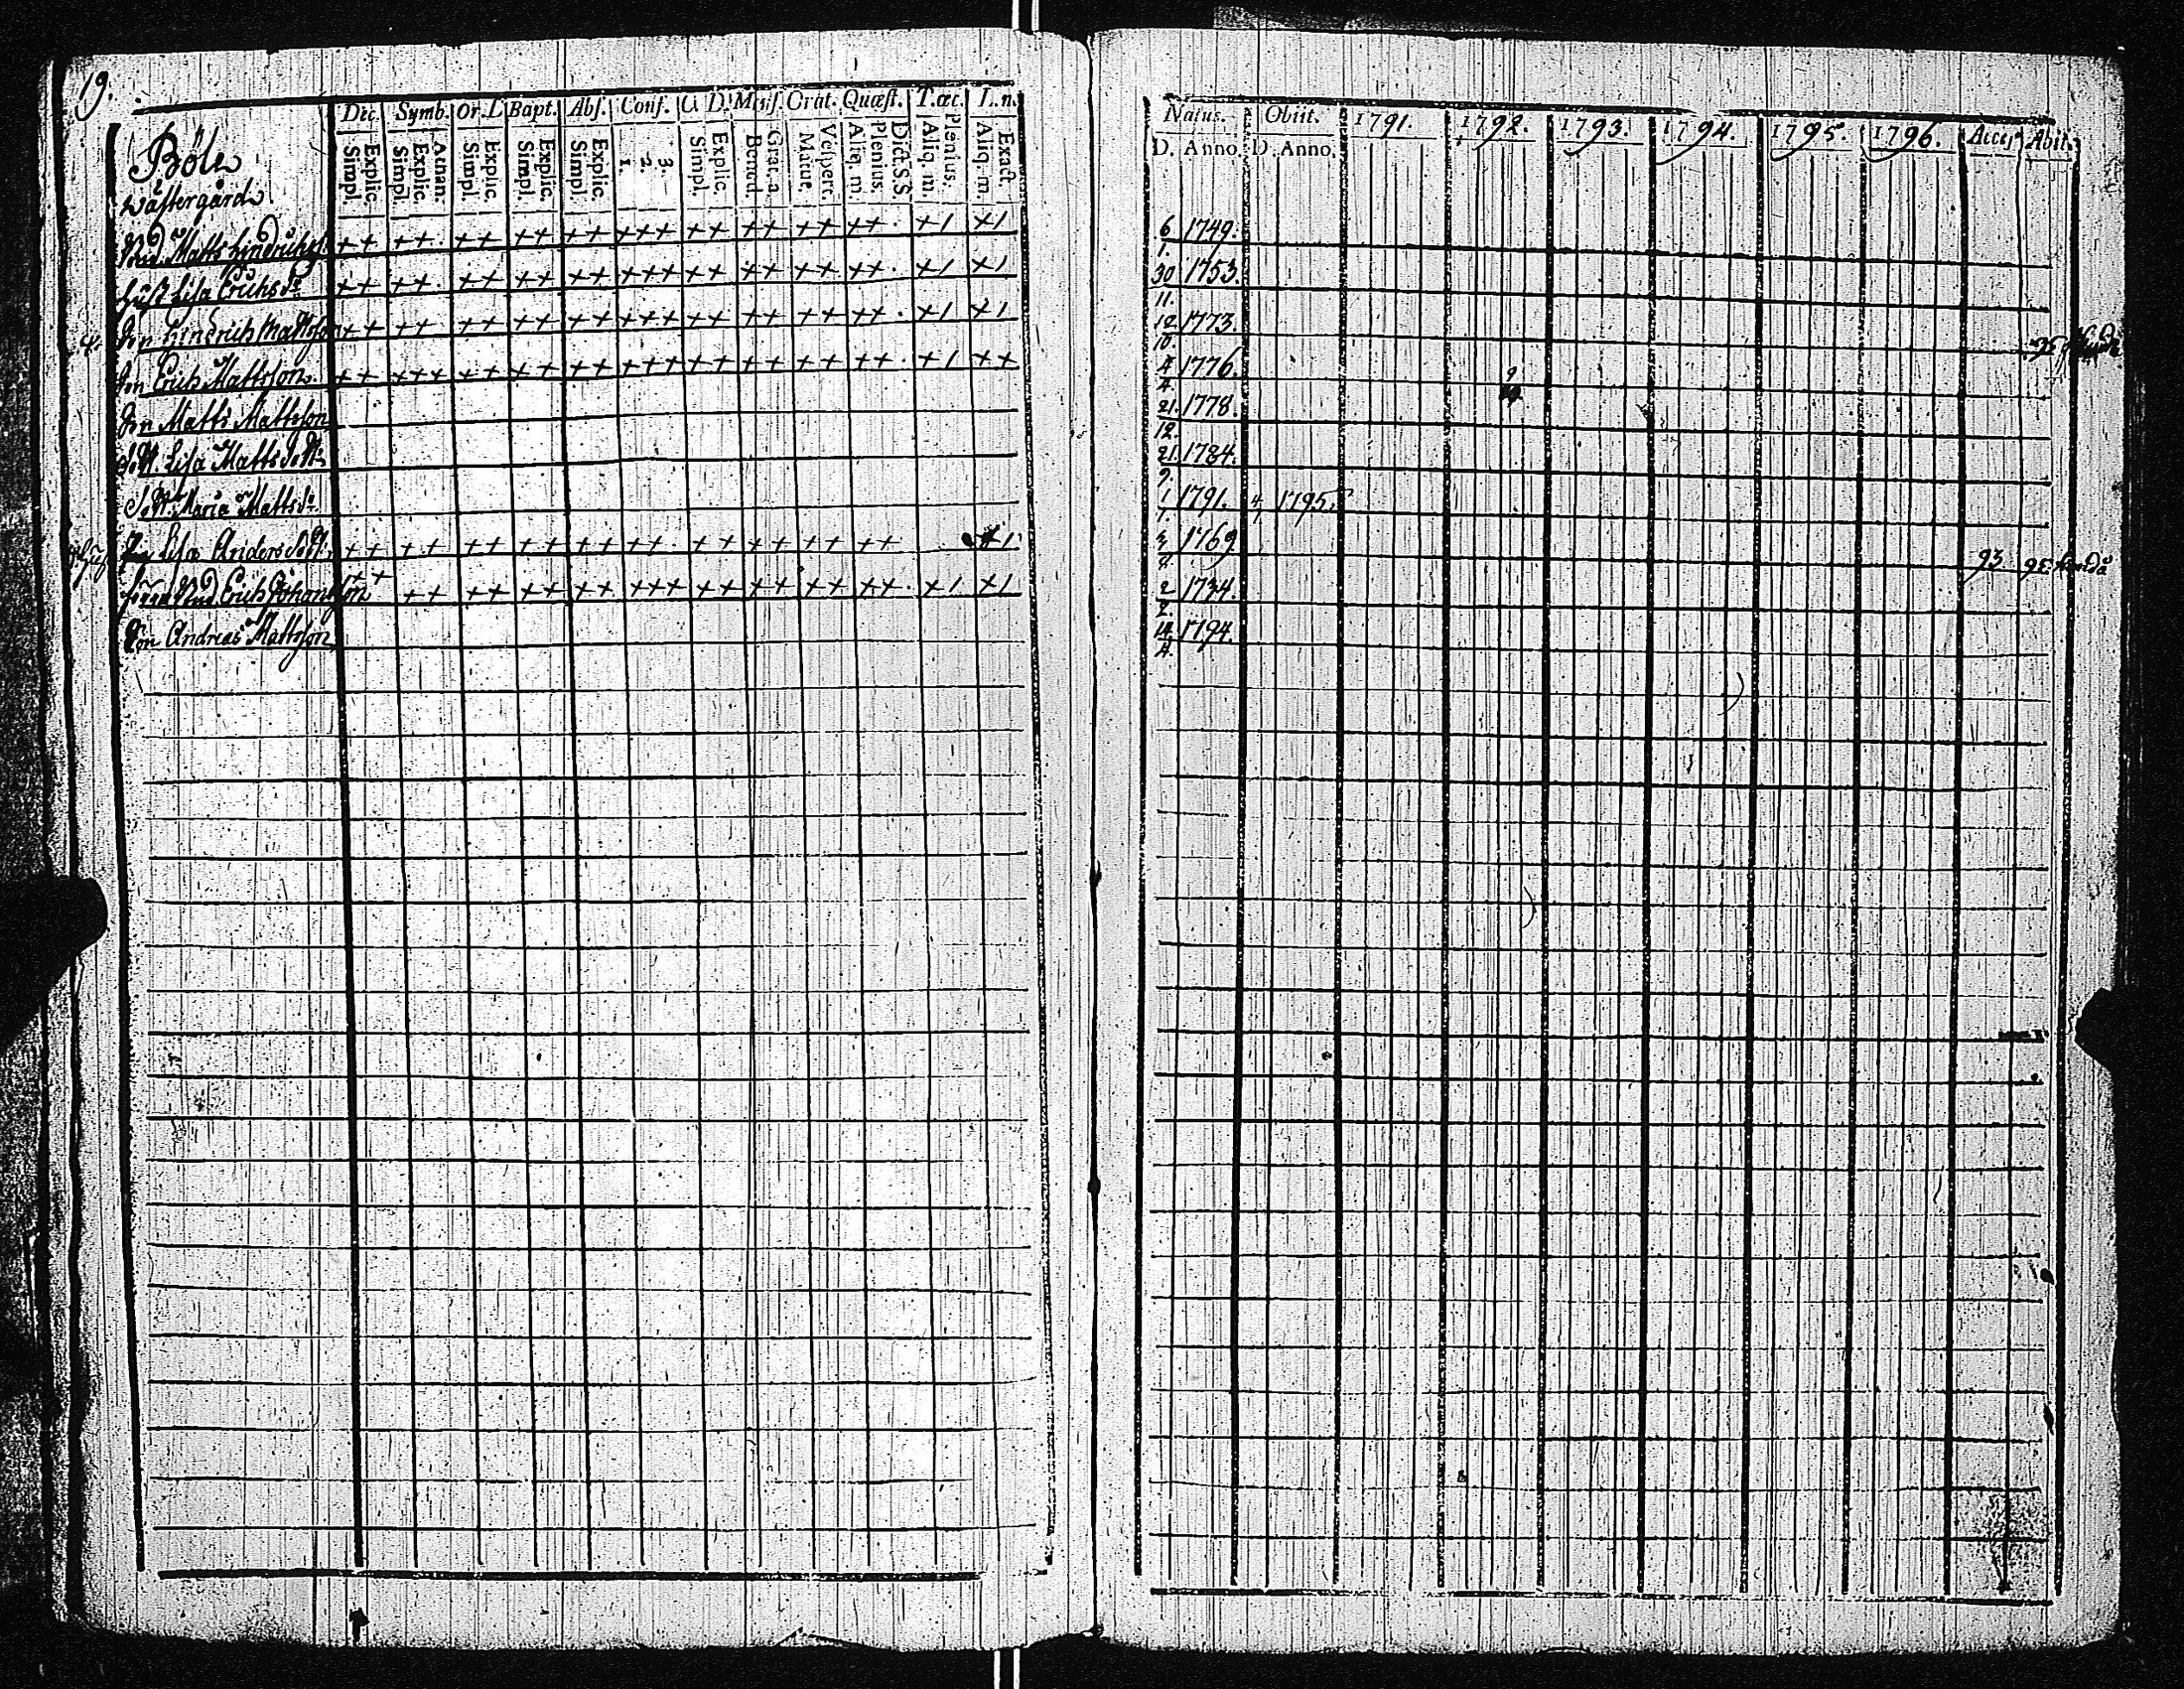 19.
Dec. Symb. Or. D Bapt. Abs. Conf. C. D. Miss. Orat. Quæst. T. œc. L. n.
Explic. Simpl. Athan. Explic. Simpl. Explic. Simpl. Explic. Simpl. Explic. Simpl. 3. 2. 1. Explic. Simpl. Grat. a. Bened. Vespert. Matut. Dict. S. S. Plenius. Aliq. m. Plenius. Aliq. m. Exact. Aliq. m.
Böle
Wästergård
Bnd. Matts Hindrichss. ++ ++. ++ ++ ++ +++ ++ ++ ++ ++. +1 +1
Hust. Lisa Erichs dr ++ ++. ++ ++ ++ +++ ++ ++ ++ ++. +1 +1
Son Hindrich Mattsson ++ ++ ++ ++ ++ +++ ++ ++ ++ ++. +1 +1
Son Erich Mattsson. ++ +++ ++ ++ ++ +++ ++ ++ ++ ++. +1 ++
Son Matts Mattsson
Dott. Lisa Matts Dott.
Dott. Maria Matts dr
Lisa Anders Dott. ++ ++ ++ ++ ++ ++. ++ ++ ++ ++ +1
Bnd. Erich Johansson ++ ++ ++ ++ ++ +++ ++ ++ ++ ++. +1 +1
Son Andreas Mattsson
Natus. Obiit. 1791. 1792. 1793. 1794. 1795. 1796. Acces Abit.
D. Anno. D. Anno.
6/1. 1749.
30/11. 1753.
12/10. 1773. 95
4/4. 1776.
21/12. 1778. 9
21/9. 1784.
1/1. 1791. 4/1 1795.
1769 93 95
2/2. 1734.
14/4. 1794.